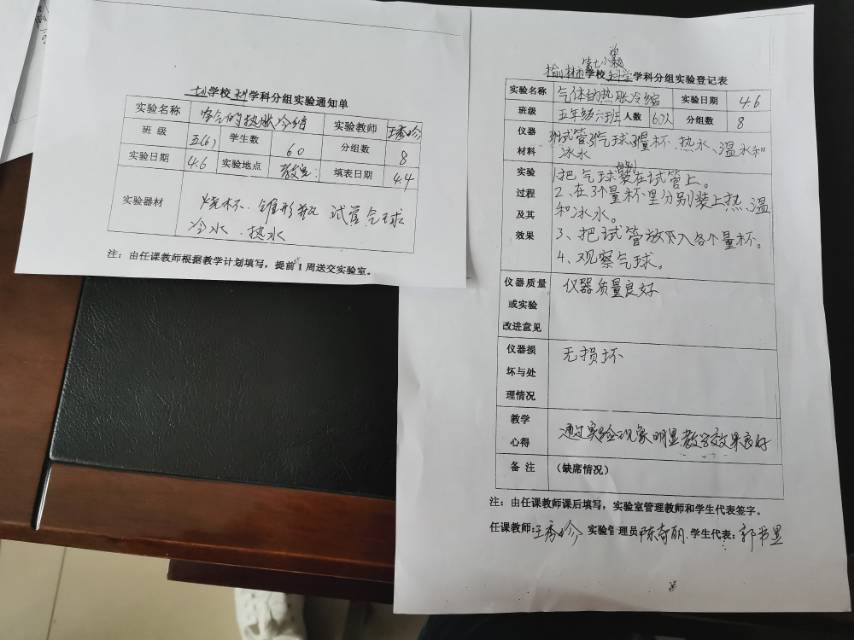 学校科学学科分组实验通知单
实验名称 空气的热胀冷缩 实验教师 王秀珍
班 级 五(6) 学生数 60 分组数 8
实验日期 4.6 实验地点 教室 填表日期 4.4
实验器材 烧杯、锥形瓶 试管 气球
冷水、热水
注：由任课教师根据教学计划填写，提前1周送交实验室。
榆林市第七小学校科学学科分组实验登记表
实验名称 气体的热胀冷缩 实验日期 4.6
班级 五年级六班 人数 60人 分组数 8
仪器材料 试管 气球 量杯、热水、温水和
冰水
实验过程及其效果 1、把气球装在试管上。
2、在3个量杯里分别装上热、温
和冰水。
3、把试管放入各个量杯。
4、观察气球。
仪器质量或实验改进意见 仪器质量良好
仪器损坏与处理情况 无损坏
教学心得 通过实验现象明显教学效果良好
备 注 （缺席情况）
注：由任课教师课后填写，实验室管理教师和学生代表签字。
任课教师：王秀珍 实验管理员 陈 丽 学生代表：郭